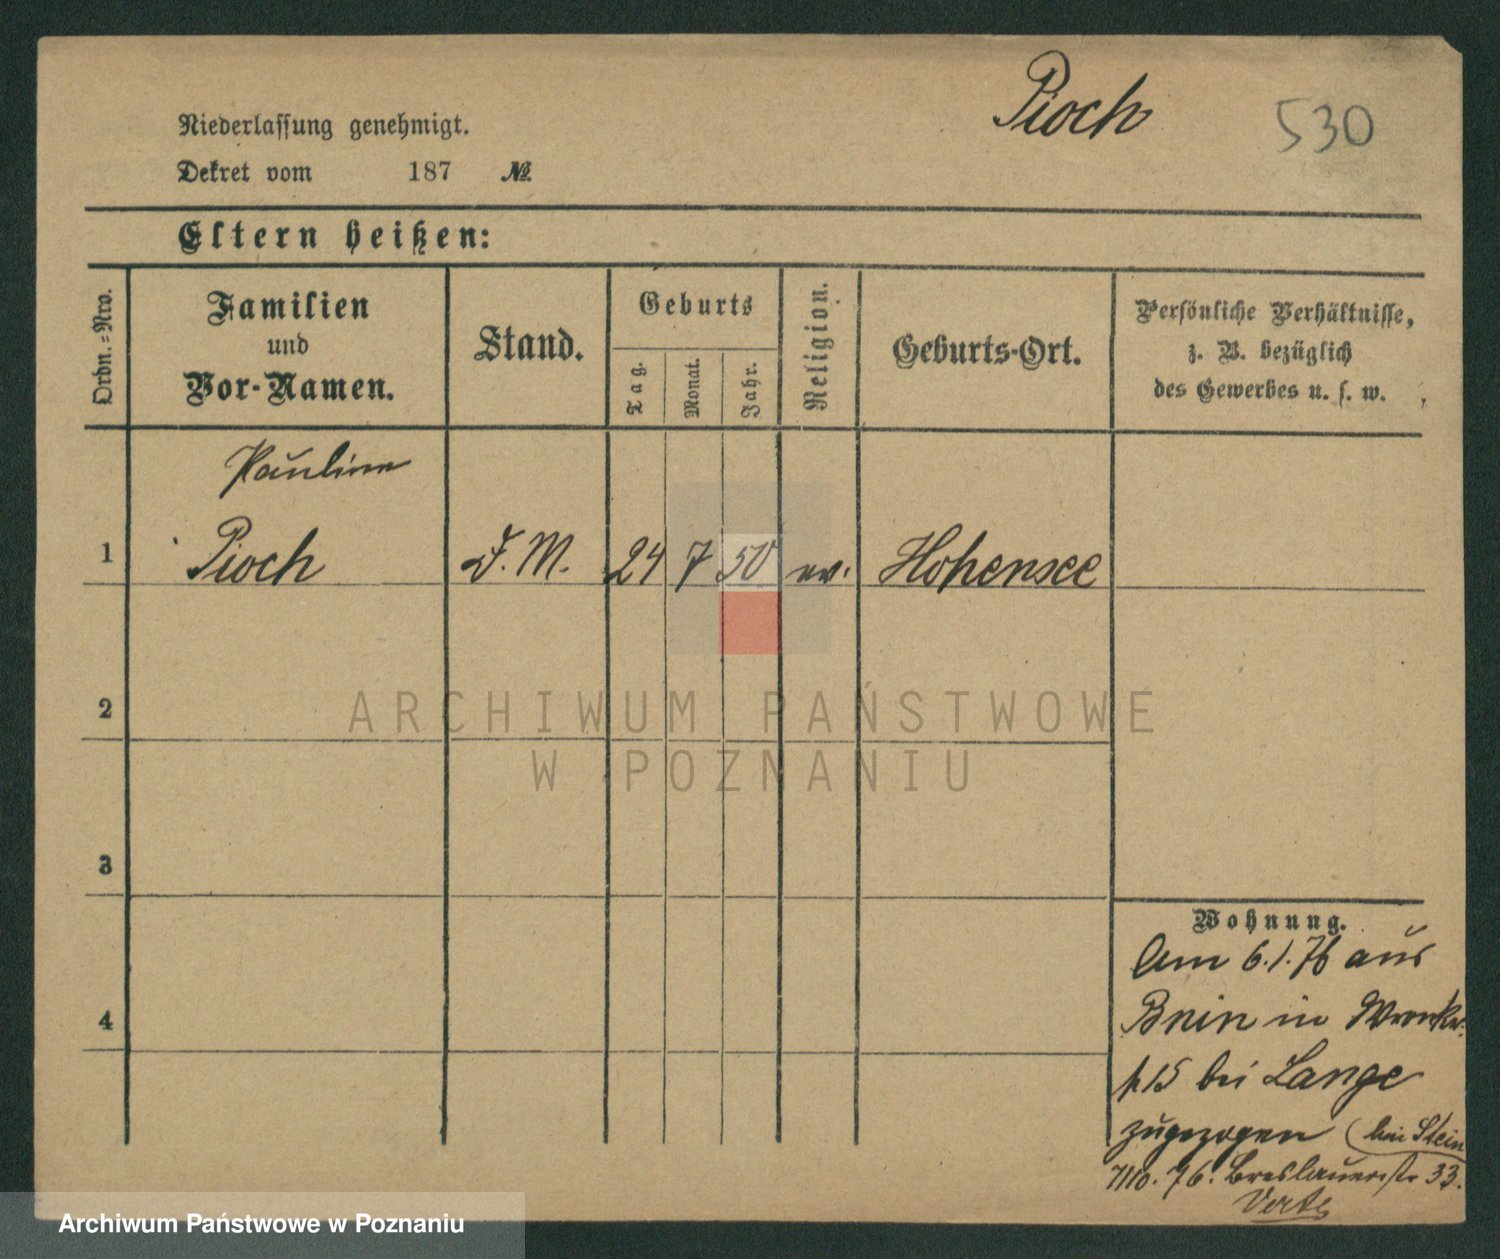 Pioch
530
Niederlassung genehmigt.
Dekret vom 187 №
Eltern heißen:
Ordn.=Nro.
Familien
und
Vor-Namen.
Stand.
Geburts
Tag.
Monat.
Jahr.
Religion.
Geburts-Ort.
Persönliche Verhältnisse,
z. B. bezüglich
des Gewerbes u. s. w.
Pauline
1 Pioch D. M. 24 7 50 ev. Hohensee
2
3
4
ARCHIWUM PAŃSTWOWE
W POZNANIU
Wohnung.
Am 6.1.76 aus
Bnin in Wronker
15 bei Lange
zugezogen (bei Stein
7/10. 76. Breslauerstr 33.
Verte
Archiwum Państwowe w Poznaniu